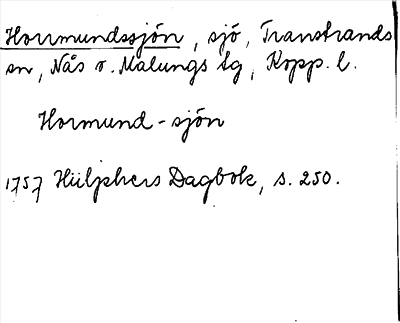 Horrmundssjön, sjö, Transtrands
sn, Nås o. Malungs tg, Kopp. l.
Hormund-sjön
1757 Hülphers Dagbok, s. 250.